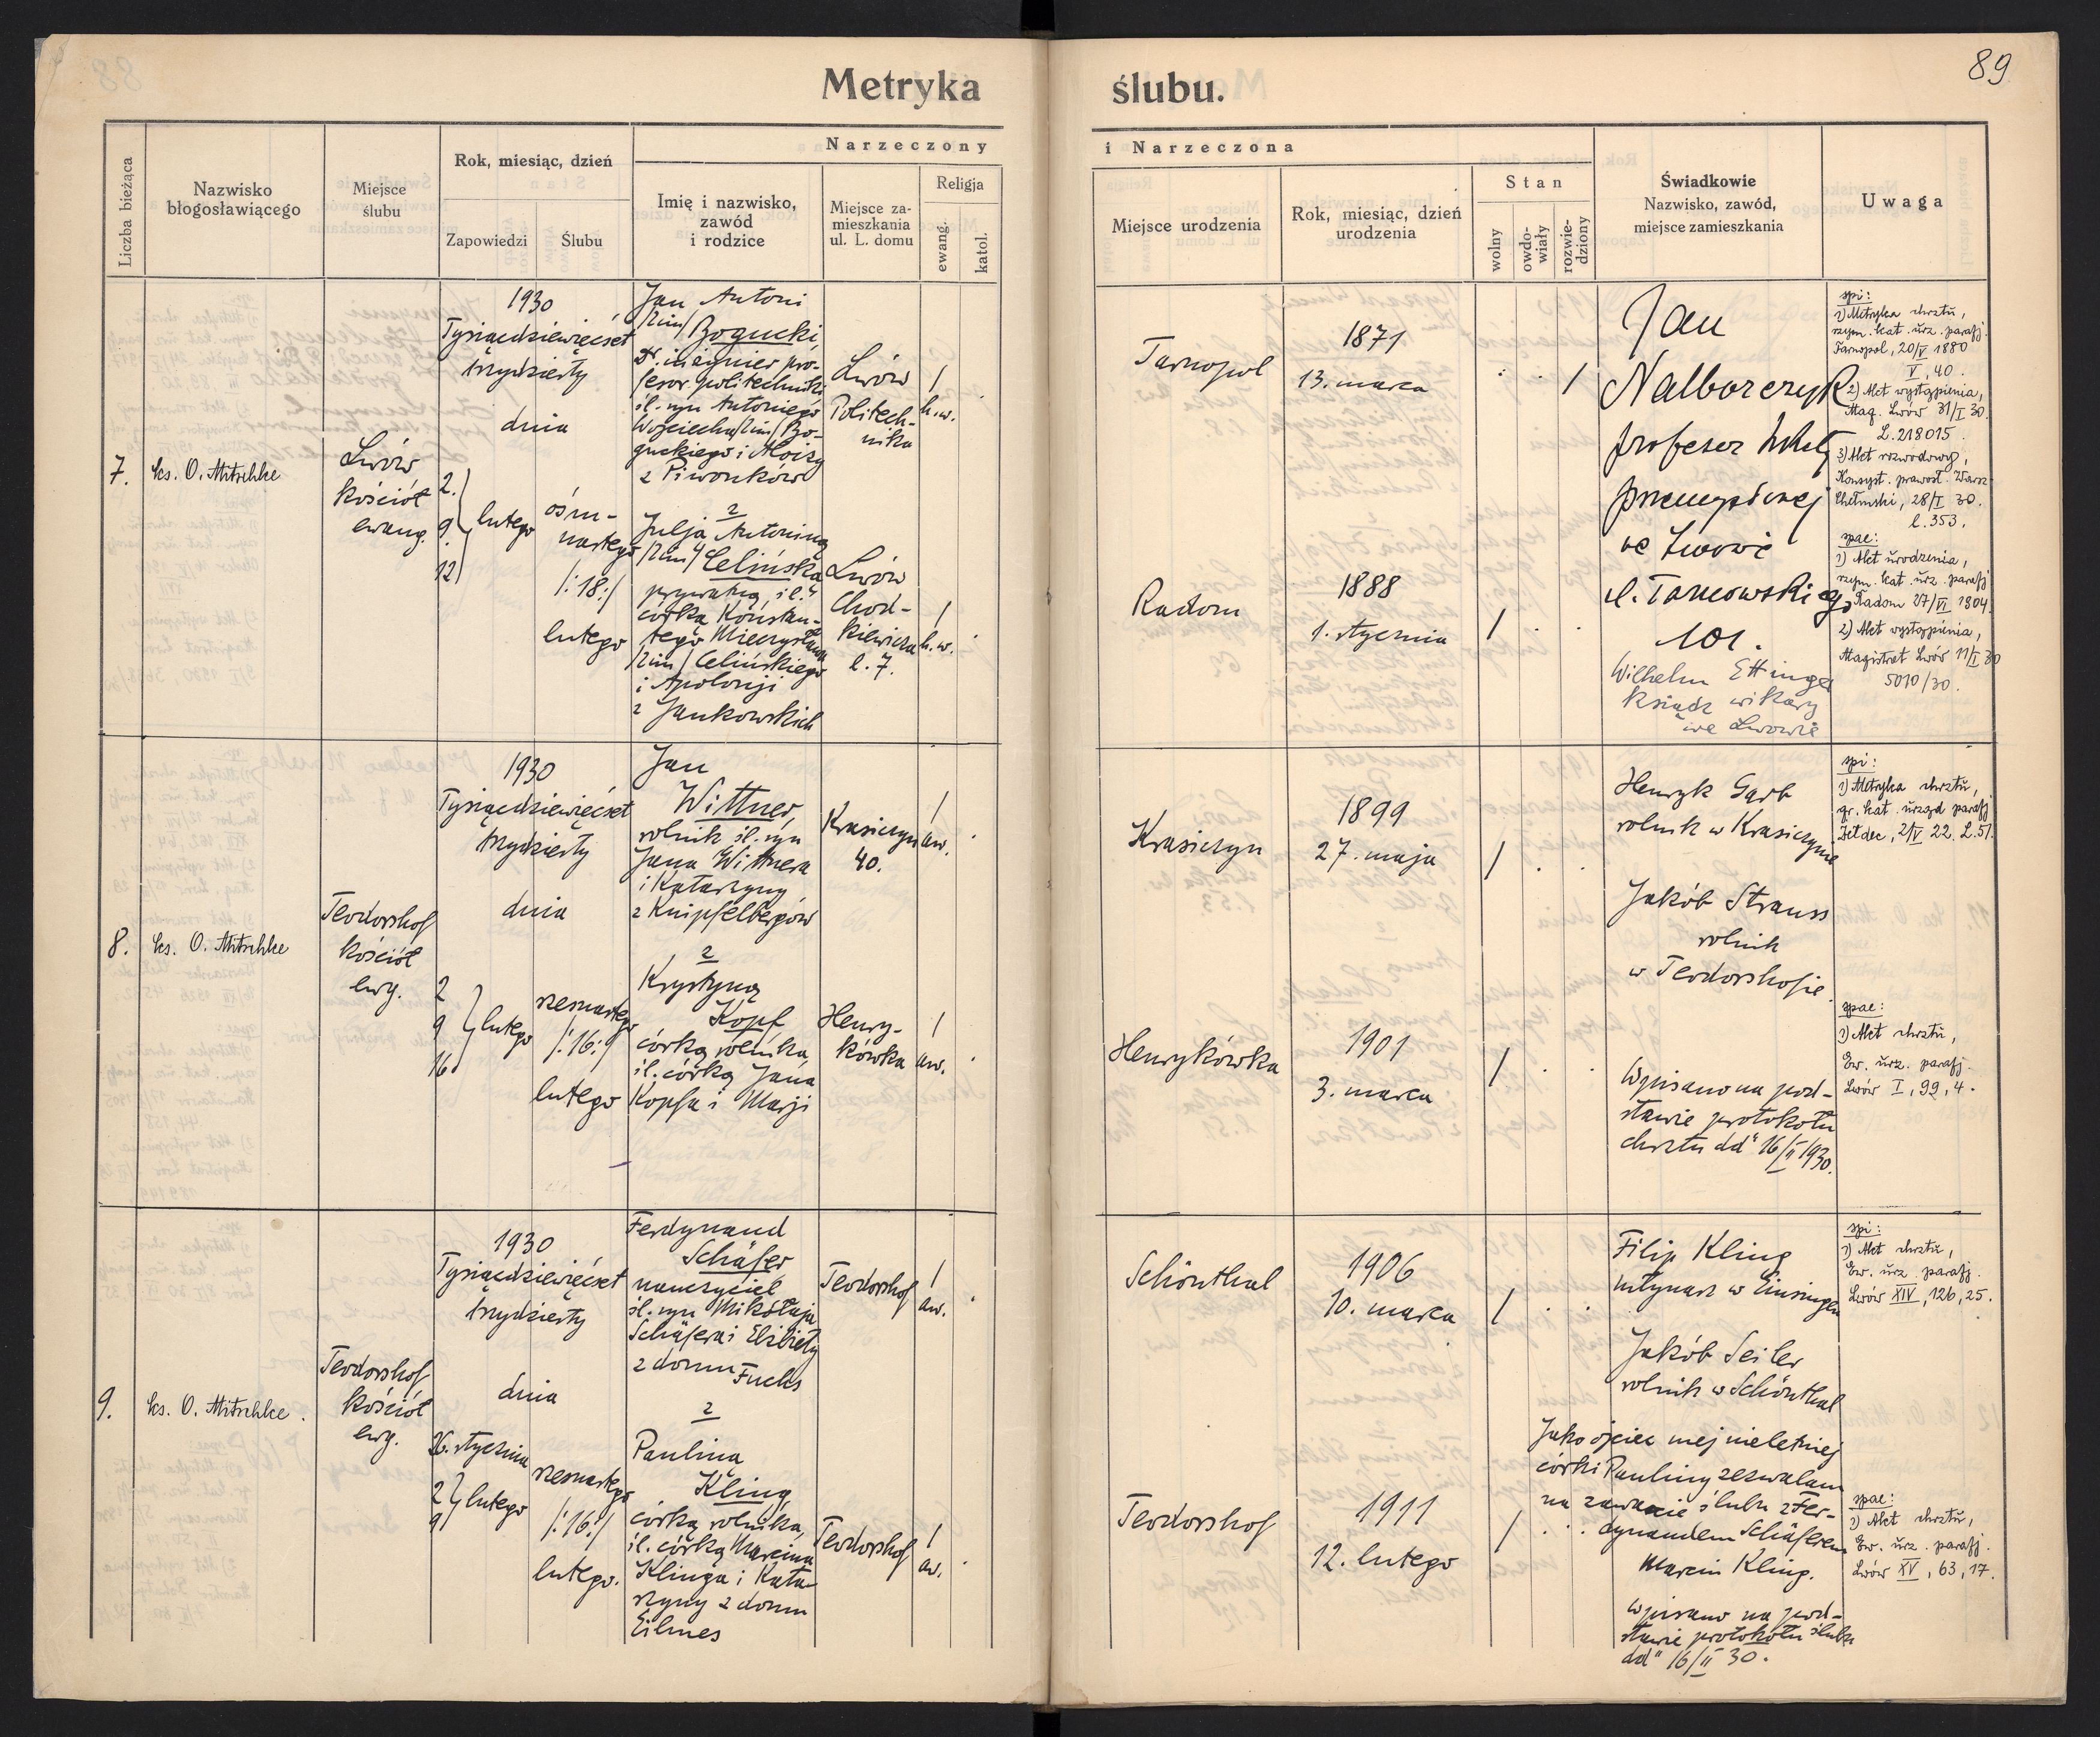 89
Metryka ślubu.
Liczba bieżąca
Nazwisko
błogosławiącego
Miejsce
ślubu
Rok, miesiąc, dzień
Zapowiedzi
Ślubu
Narzeczony
Imię i nazwisko,
zawód
i rodzice
Miejsce za-
mieszkania
ul. L. domu
Religja
ewang.
katol.
i Narzeczona
Miejsce urodzenia
Rok, miesiąc, dzień
urodzenia
Stan
wolny
owdo-
wiały
rozwie-
dziony
Świadkowie
Nazwisko, zawód,
miejsce zamieszkania
Uwaga
7.
ks. O. Mitschke
Lwów
kościół
ewang.
1930
Tysiącdziewięćset
trzydziesty
dnia
2.
9.
12
lutego
ośm-
nastego
/:18:/
lutego
Jan Antoni
/2im/ Bogucki
Dr. inżynier pro-
fesor politechniki
śl. syn Antoniego
Wojciecha /2im/ Bo-
guckiego i Aloizy
z Piwonków
z
Julją Antoniną
/2im/ Celińską
prywatną, śl.
córką Konstan-
tego Mieczysława
/2im/ Celińskiego
i Apolonji
z Jankowskich
Lwów
Politech-
nika
1
h.w.
Lwów
Chod-
kiewicza
l. 7.
1
h.w.
Tarnopol
1871
13. marca
1
Radom
1888
1. stycznia
1
Jan
Nalborczyk
profesor szkoły
przemysłowej
we Lwowie
ul. Tarnowskiego
101.
Wilhelm Ettinger
ksiądz wikary
we Lwowie
spi:
1) Metryka chrztu,
rzym. kat. urz. parafj.
Tarnopol, 20/V 1880
V, 40.
2) Akt wystąpienia,
Mag. Lwów 31/I 30.
L. 218015.
3) Akt rozwodowy,
Konsyst. prawosł. Warsz.
Chełmski, 28/I 30.
l. 353.
spae:
1) Akt urodzenia,
rzym. kat. urz. parafj
Radom 27/VI 1904.
2) Akt wystąpienia,
Magistrat Lwów 11/I 30
5010/30.
8.
ks. O. Mitschke
Teodorshof
kościół
ewg.
1930
Tysiącdziewięćset
trzydziesty
dnia
2
9
16
lutego
szesnastego
/:16:/
lutego
Jan
Wittner
rolnik śl. syn
Jana Wittnera
i Katarzyny
z Knipfelbergów
z
Krystyną
Kopf
córką rolnika,
śl. córką Jana
Kopfa i Marji
Krasiczyn
40.
1
aw.
Henry-
kówka
1
aw.
Krasiczyn
1899
27. maja
1
Henrykówka
1901
3. marca
1
Henryk Garb
rolnik w Krasiczynie
Jakób Strauss
rolnik
w Teodorshofie.
Wpisano na pod-
stawie protokołu
chrztu dd" 16/II 1930.
spi:
1) Metryka chrztu,
gr. kat. urząd parafj
2/V 22. L. 51.
spae:
1) Akt chrztu,
Ew. urz. parafj.
Lwów I, 99, 4.
9.
ks. O. Mitschke.
Teodorshof
kościół
ewg.
1930
Tysiącdziewięćset
trzydziesty
dnia
26. stycznia
2
9
lutego
szesnastego
/:16:/
lutego.
Ferdynand
Schäfer
nauczyciel
śl. syn Mikołaja
Schäfera i Elżbiety
z domu Fuchs
z
Pauliną
Kling
córką rolnika,
śl. córką Marcina
Klinga i Kata-
rzyny z domu
Eilmes
Teodorshof
1
aw.
Teodorshof
1
aw.
Schönthal
1906
10. marca
1
Teodorshof
1911
12. lutego
1
Filip Kling
młynarz w Einsingen
Jakób Seiler
rolnik w Schönthal
Jako ojciec mej nieletniej
córki Pauliny zezwalam
na zawarcie ślubu z Fer-
dynandem Schäferem
Marcin Kling.
Wpisano na pod-
stawie protokołu ślubu
dd" 16/II 30.
spi:
1) Akt chrztu,
Ew. urz. parafj.
Lwów XIV, 126, 25.
spae:
1) Akt chrztu,
Ew. urz. parafj.
Lwów XV, 63, 17.